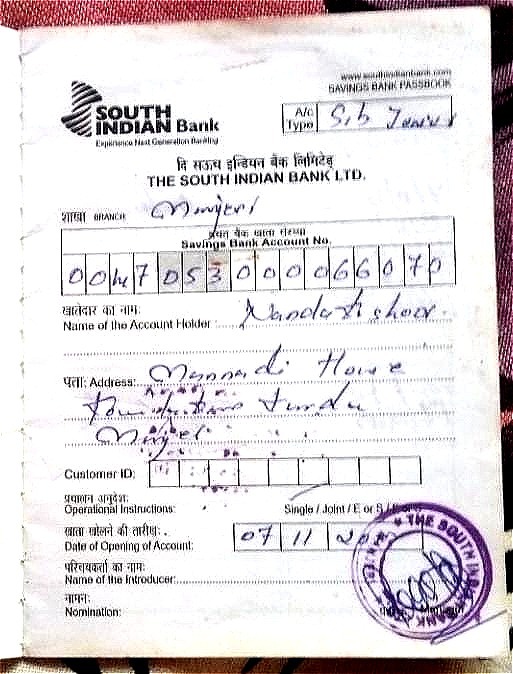 www.southindianbank.com
SAVINGS BANK PASSBOOK
SOUTH
INDIAN Bank
Experience Next Generation Banking
A/c
Type
दि साउथ इन्डियन बैंक लिमिटेड्
THE SOUTH INDIAN BANK LTD.
शाखा BRANCH Manjeri
बचत बैंक खाता संख्या
Savings Bank Account No.
0047053000066070
खातेदार का नाम:
Name of the Account Holder : Nanda Kishoor
पता: Address: Mannadi House
Manjeri
Customer ID:
प्रचालन अनुदेश:
Operational Instructions: Single / Joint / E or S /
खाता खोलने की तारीख:
Date of Opening of Account: 07 11 20
परिचयकर्ता का नाम:
Name of the Introducer:
नामन:
Nomination:
THE SOUTH INDIAN BANK